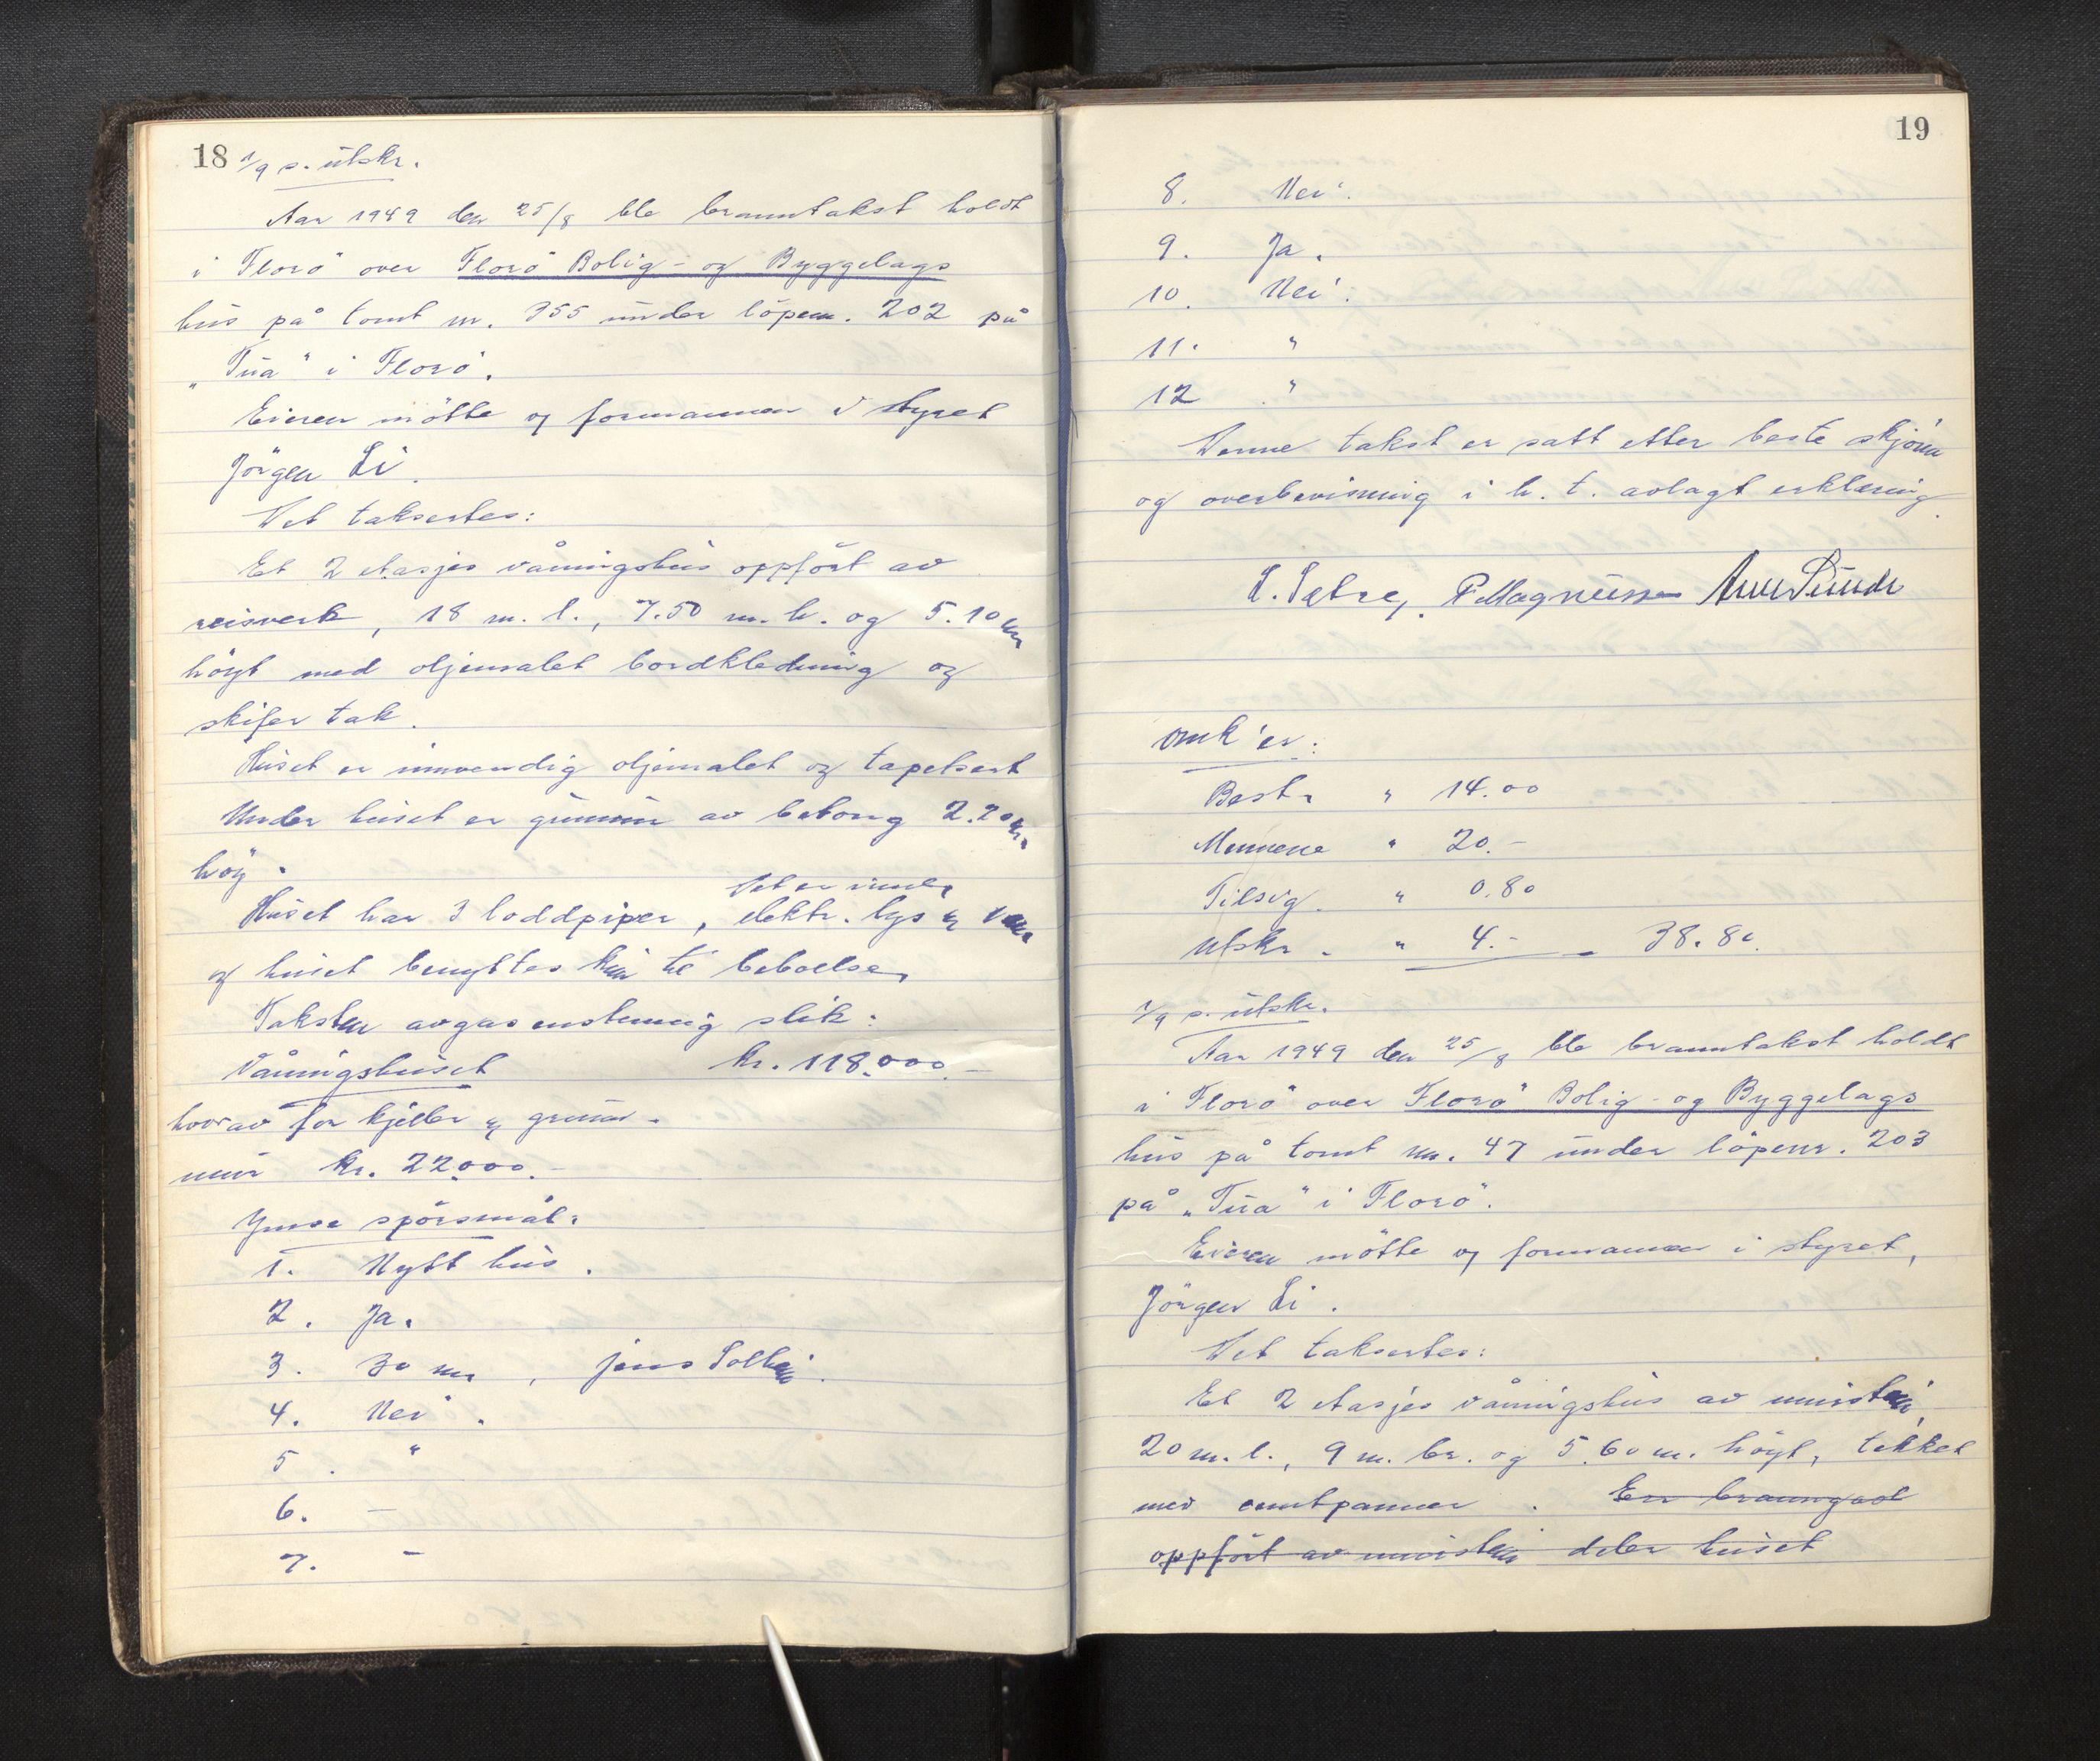 18 1/9 s. utskr.
Aar 1949 den 25/8 ble branntakst holdt
i Florö over Florö Bolig- og Byggelags
hus på tomt nr. 355 under löpenr. 202 på
"Tua" i Florö.
Eieren mötte og formannen i styret
Jörgen Li.
Det takseres:
Et 2 etasjes våningshus oppfört av
reisverk, 18 m. l., 7.50 m. br. og 5.10 m
höyt med oljemalet bordkledning og
skifer tak.
Huset er innvendig oljemalet og tapetsert
Under huset er grunnmur av betong 2.20 m.
höy.
Det er innl.
Huset har 3 loddpiper, elektr. lys og
og huset benyttes kun til beboelse.
Taksten avgas enstemmig slik:
Våningshuset kr. 118.000.-
hvorav for kjeller og grunn-
mur kr. 22.000.-
Ymse spörsmål:
1. Nytt hus.
2. Ja.
3. 30 m, Jens Solheim.
4. Nei.
5. "
6. -
7. -
19
8. Nei.
9. Ja.
10. Nei.
11. "
12 "
Denne takst er satt etter beste skjönn
og overbevisning i h. t. avlagt erklæring.
S. Sætre, P Magnussen Arne Sunde
Omk'er:
Best. " 14.00
Mennene " 20.-
Tilsig. " 0.80
Utskr. " 4.- = 38.80.
1/9 s. utskr.
Aar 1949 den 25/8 ble branntakst holdt
i Florö over Florö Bolig- og Byggelags
hus på tomt nr. 47 under löpenr. 203
på "Tua" i Florö.
Eieren mötte og formannen i styret,
Jörgen Li.
Det takseres:
Et 2 etasjes våningshus av murstein,
20 m. l., 9 m. br. og 5.60 m. höyt, tekket
med cemtpanner. En branngavl
oppfört av murstein deler huset